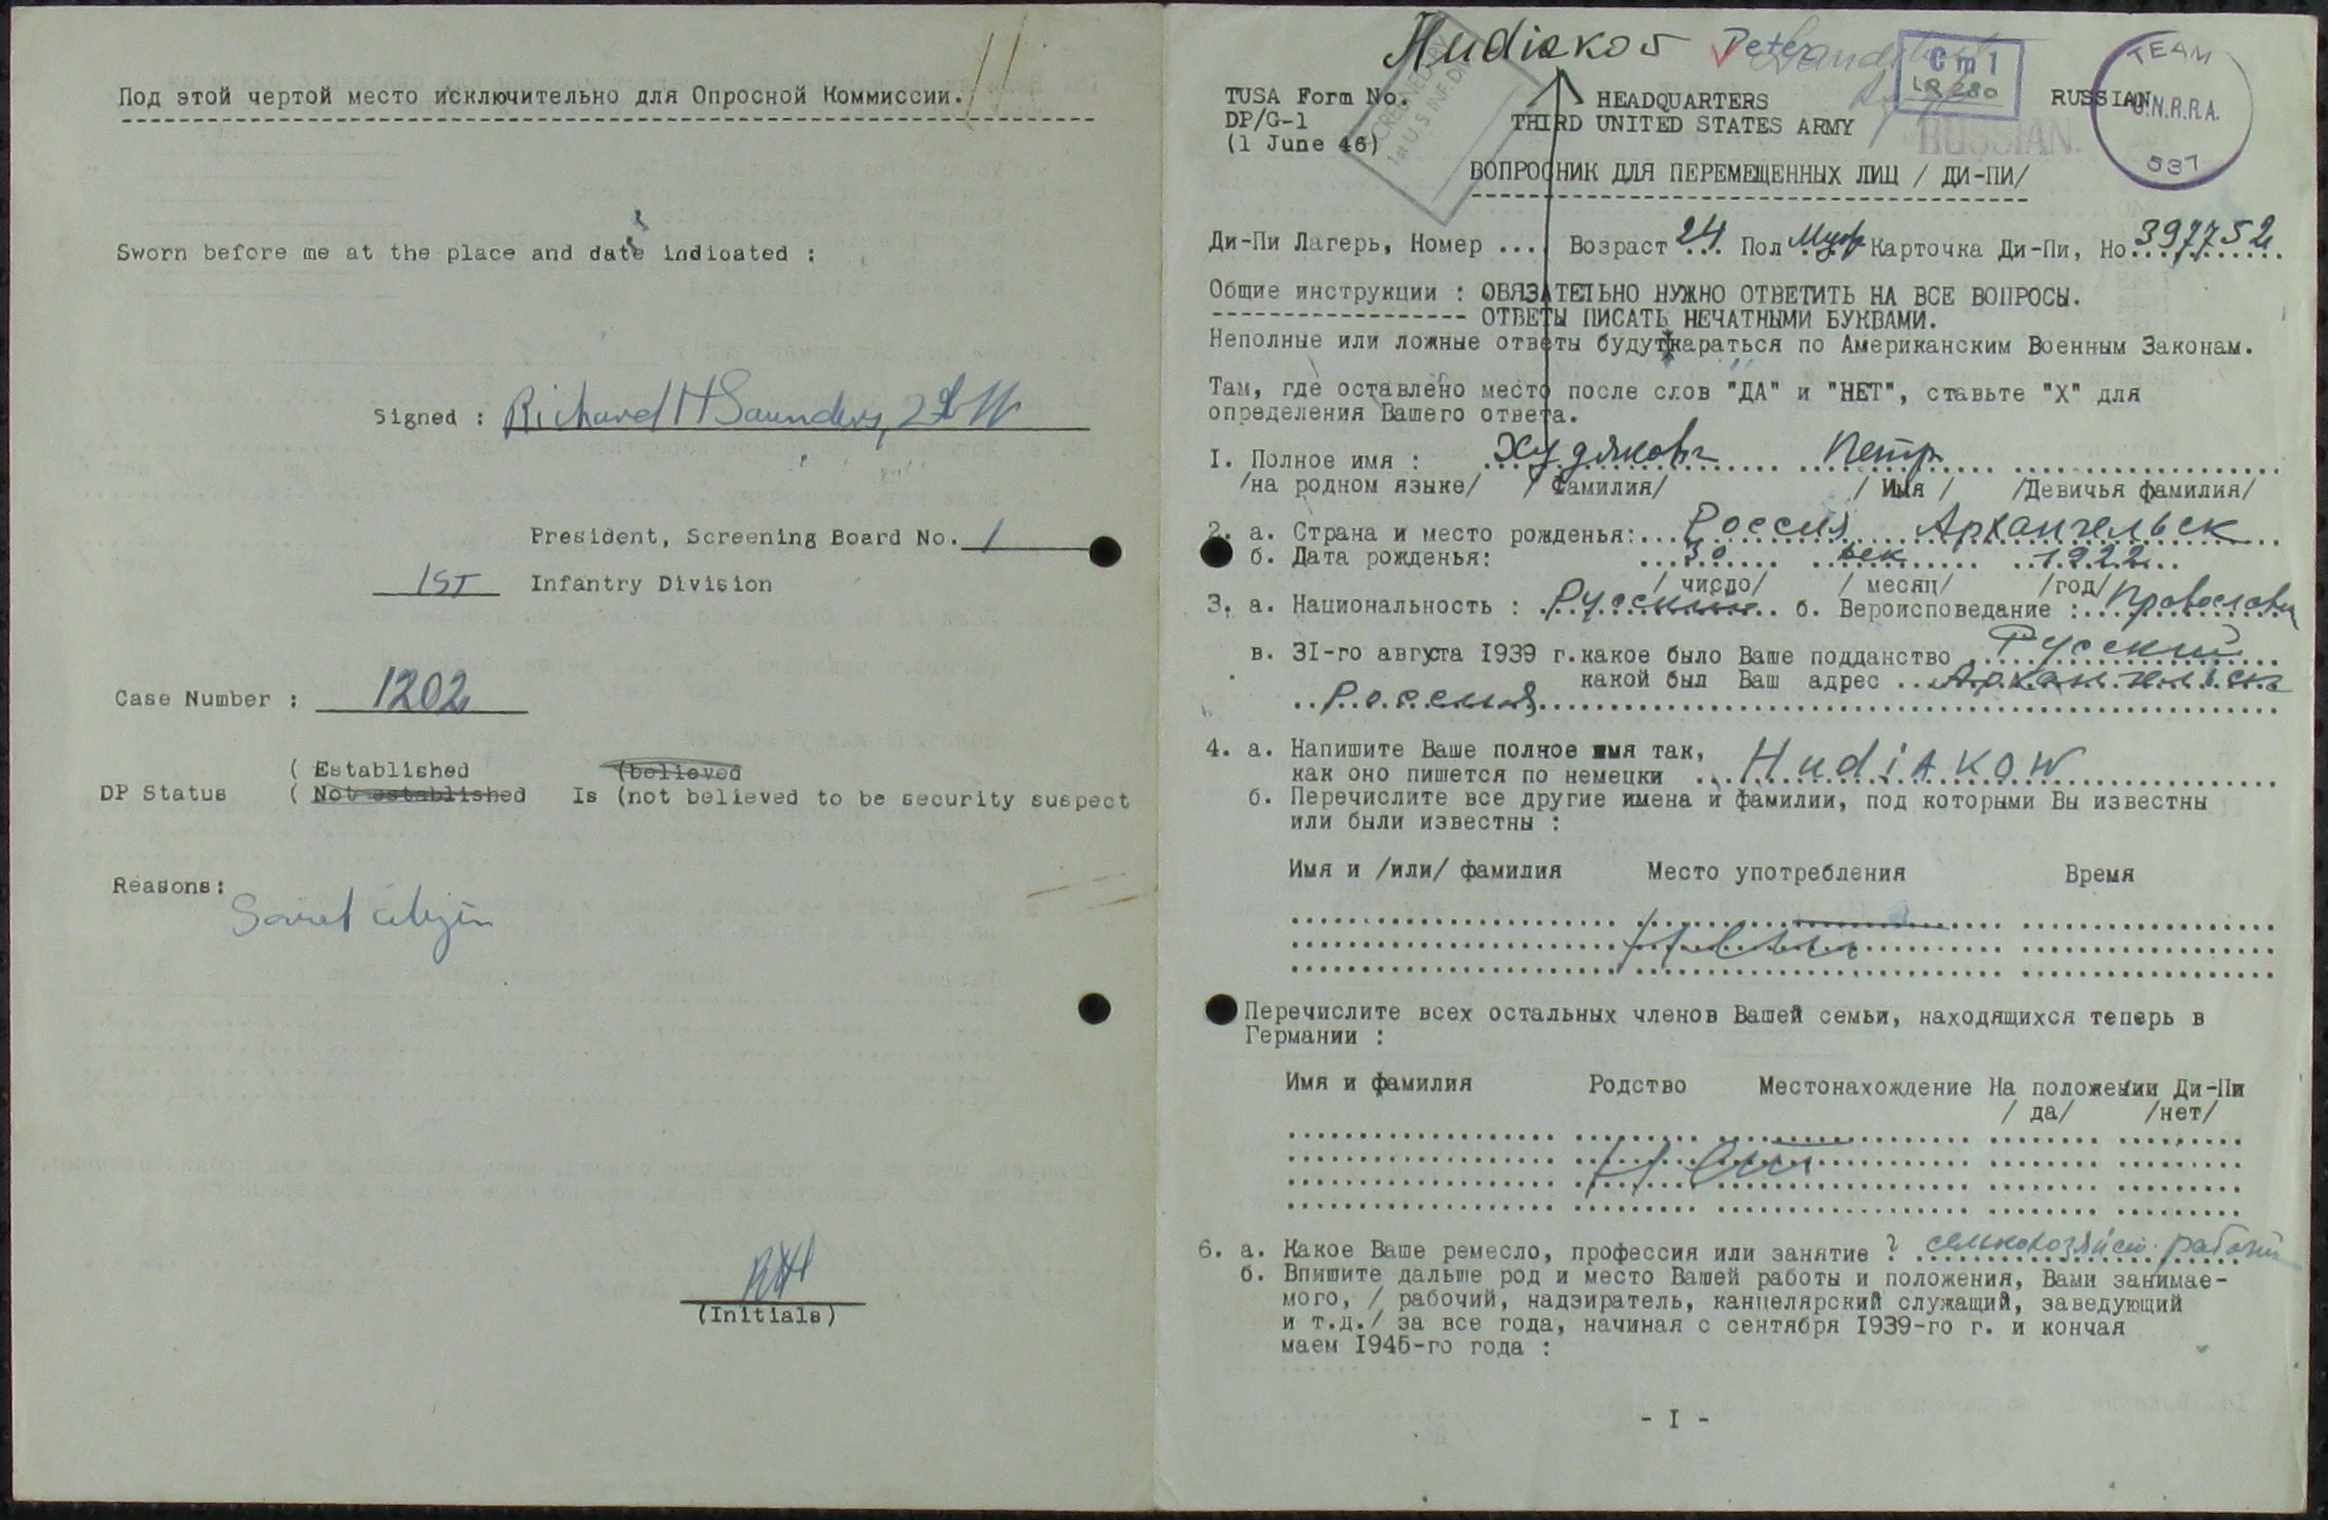 Под этой чертой место исключительно для Опросной Коммиссии.
Sworn before me at the place and date indicated :
Signed : Richard H Saunders, 2
President, Screening Board No. 1
1ST Infantry Division
Case Number : 1202
( Established (believed
DP Status ( Not established Is (not believed to be security suspect
Reasons:
Soviet citizen
RHS
(Initials)
Hudiakov Peter
Cm 1
LR 280
TEAM
U.N.R.R.A.
537
TUSA Form No. HEADQUARTERS RUSSIAN
DP/G-1 THIRD UNITED STATES ARMY
(1 June 46) RUSSIAN.
SCREENED BY
1st U.S. INF. DIV.
ВОПРОСНИК ДЛЯ ПЕРЕМЕЩЕННЫХ ЛИЦ / ДИ-ПИ/
Ди-Пи Лагерь, Номер .... Возраст 24 Пол Муж Карточка Ди-Пи, Но. 397752
Общие инструкции : ОБЯЗАТЕЛЬНО НУЖНО ОТВЕТИТЬ НА ВСЕ ВОПРОСЫ.
ОТВЕТЫ ПИСАТЬ НЕЧАТНЫМИ БУКВАМИ.
Неполные или ложные ответы будут караться по Американским Военным Законам.
Там, где оставлено место после слов "ДА" и "НЕТ", ставьте "Х" для
определения Вашего ответа.
I. Полное имя : Худяковъ Петр
/на родном языке/ / Фамилия/ / Имя / /Девичья фамилия/
2. а. Страна и место рожденья: Россия Архангельск
б. Дата рожденья: 30 дек 1922
/ число/ / месяц/ /год/
3. а. Национальность : Русский б. Вероисповедание : Православн
в. 31-го августа 1939 г. какое было Ваше подданство Русский
какой был Ваш адрес Архангельск
Россия
4. а. Напишите Ваше полное имя так,
как оно пишется по немецки HudiAKOW
б. Перечислите все другие имена и фамилии, под которыми Вы известны
или были известны :
Имя и /или/ фамилия Место употребления Время
Перечислите всех остальных членов Вашей семьи, находящихся теперь в
Германии :
Имя и фамилия Родство Местонахождение На положении Ди-Пи
/ да/ /нет/
6. а. Какое Ваше ремесло, профессия или занятие ? сельскохозяйст. рабочий
б. Впишите дальше род и место Вашей работы и положения, Вами занимае-
мого, / рабочий, надзиратель, канцелярский служащий, заведующий
и т.д./ за все года, начиная с сентября 1939-го г. и кончая
маем 1945-го года :
- I -